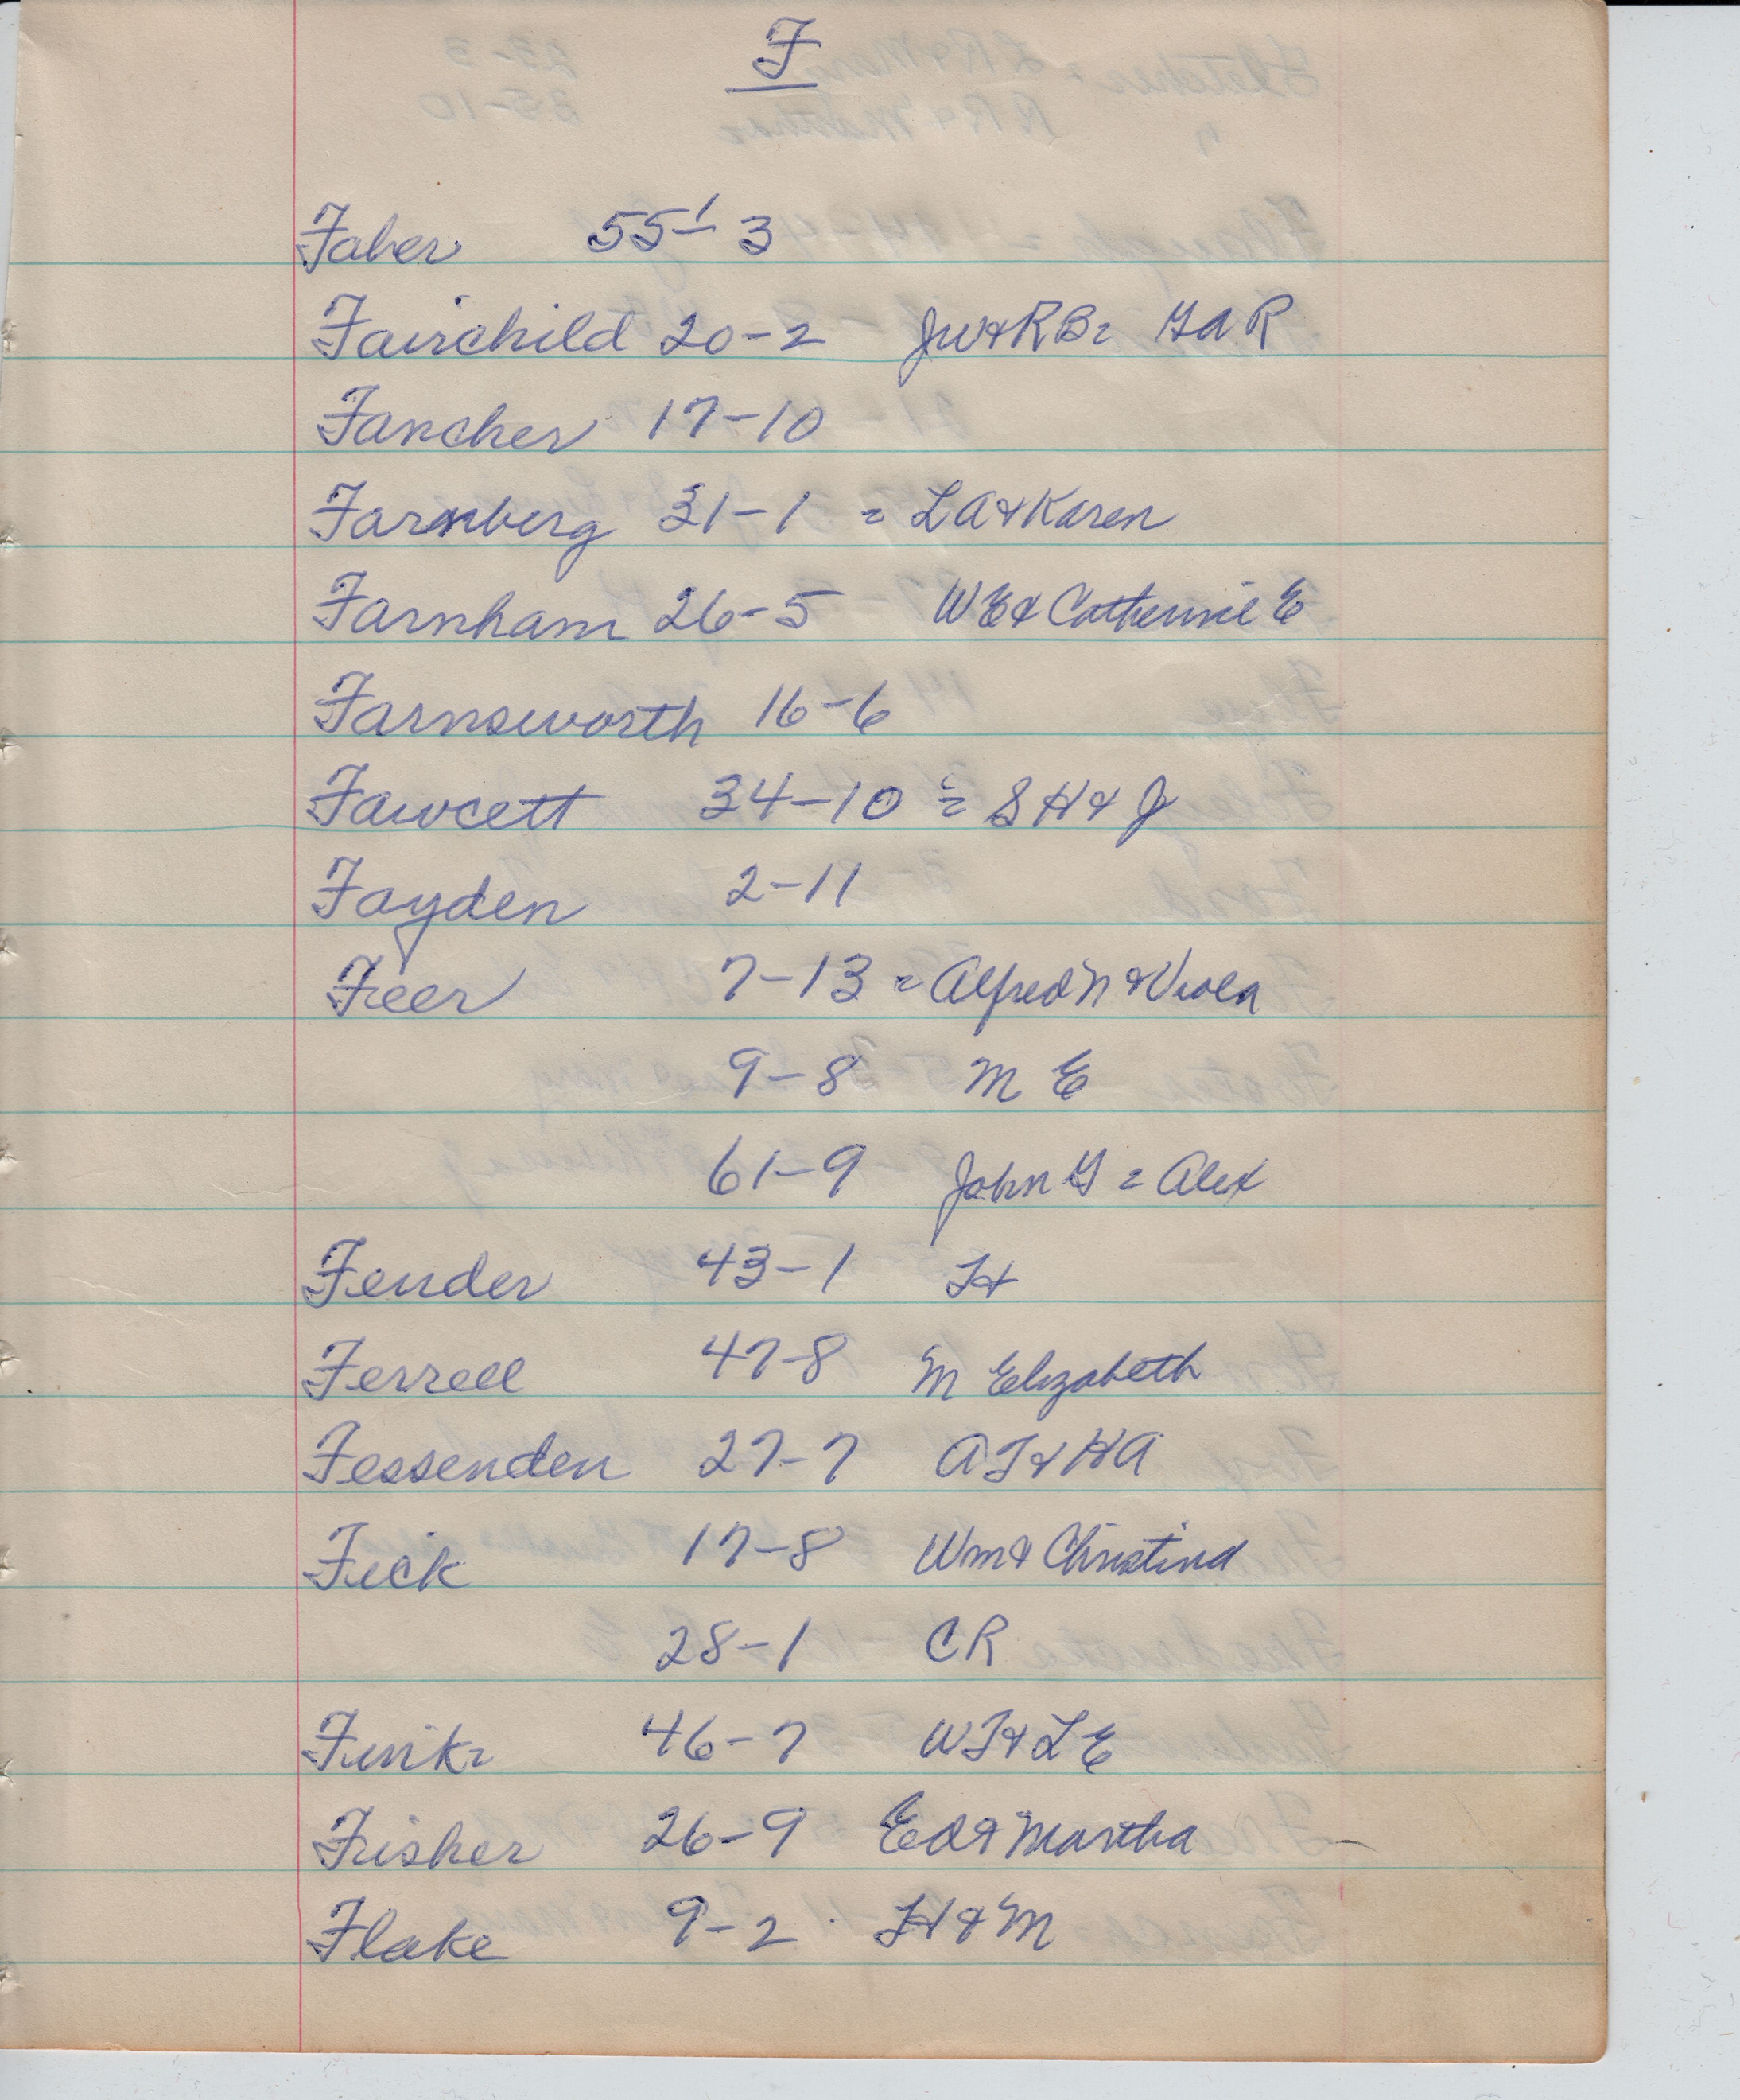 F
Faber 55-3
Fairchild 20-2 JW & RB = GAR
Fancher 17-10
Farnberg 31-1 = LA & Karen
Farnham 26-5 WE & Catherine E
Farnsworth 16-6
Fawcett 34-10 = SH & J
Fayden 2-11
Feer 7-13 = Alfred N & Viola
9-8 M E
61-9 John G = Alex
Fender 43-1
Ferrell 47-8 M Elizabeth
Fessenden 27-7 AF & HA
Fick 17-8 Wm & Christina
28-1 CR
Fink = 46-7 WF & LE
Fisher 26-9 Ed & Martha
Flake 9-2 H & M